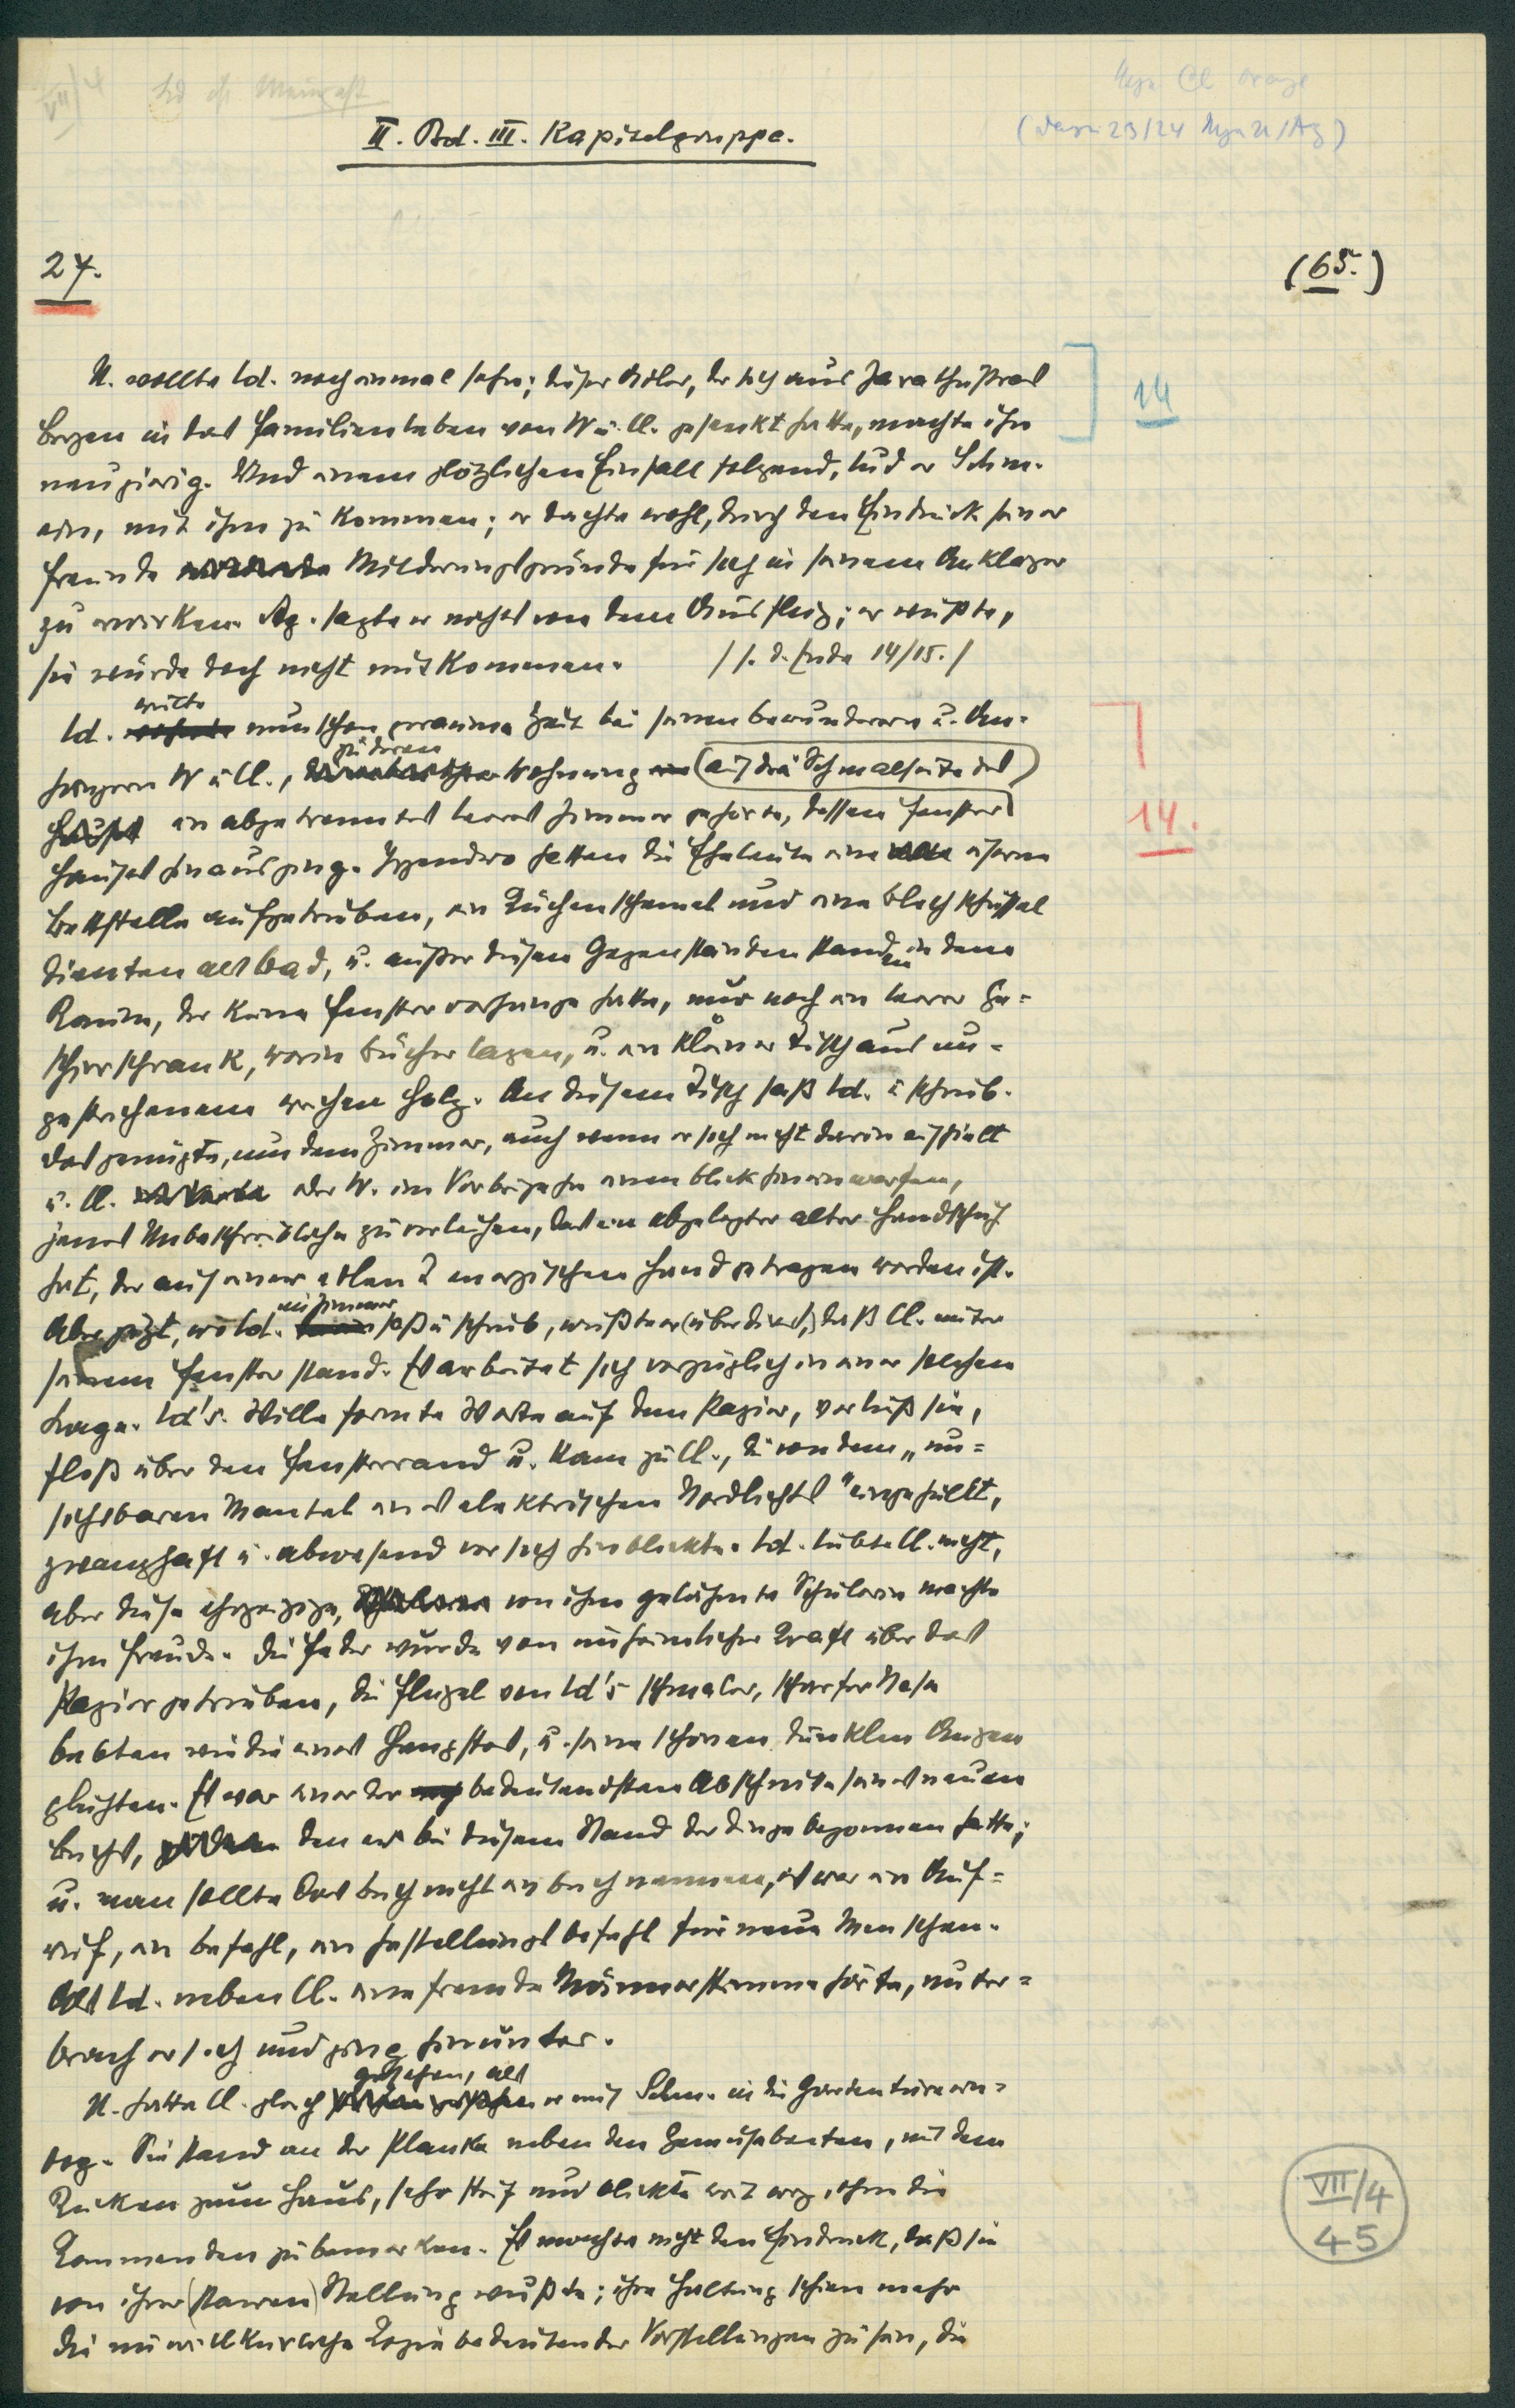 VII/4
Ld ist Meingast
II. Bd. III. Kapitelgruppe.
27.
(65.)
U. wollte Ld. noch einmal sehn; dieser Adler, der sich aus Zarathustras
Bergen in das Familienleben von W u. Cl. gesenkt hatte, machte ihn
neugierig. Und einem plötzlichen Einfall folgend, lud er Schm.
ein, mit ihm zu kommen; er dachte wohl, durch den Eindruck seiner
Freunde Milderungsgründe für sich in seinem Ankläger
zu erwirken. Ag. sagte er nichts von dem Ausflug; er wußte,
sie würde doch nicht mitkommen. / s. d. Ende 14/15. /
14
Ld. weilte nun schon geraume Zeit bei seinen Bewunderern u. An-
hängern W u Cl., zu deren Wohnung (auf die Schmalseite des)
ein abgetrenntes leeres Zimmer gehörte, dessen Fenster
14.
Hauses hinausging. Irgendwo hatten die Eheleute eine eiserne
Bettstelle aufgetrieben, ein Küchenschemel und eine Blechschüssel
dienten als Bad, u. außer diesen Gegenständen standen in dem
Raum, der keine Fenstervorhänge hatte, nur noch ein leerer Ge-
schirrschrank, worin Bücher lagen, u. ein kleiner Tisch aus un-
gestrichenem weichen Holz. An diesem Tisch saß Ld. u schrieb.
Das genügte, um dem Zimmer, auch wenn er sich nicht darin aufhielt
u. Cl. oder W. im Vorbeigehn einen Blick hineinwarfen,
jenes Unbeschreibliche zu verleihen, das ein abgelegter alter Handschuh
hat, der auf einer edlen u energischen Hand getragen worden ist.
Aber jetzt, wo Ld. im Zimmer saß u schrieb, wußte er (überdies,) daß Cl. unter
seinem Fenster stand. Es arbeitet sich vorzüglich in einer solchen
Lage. Ld's. Wille formte Worte auf dem Papier, verließ sie,
floß über den Fensterrand u. kam zu Cl., die von dem „un-
sichtbaren Mantel eines elektrischen Nordlichts" eingehüllt,
zwanghaft u. abwesend vor sich hinblickte. Ld. liebte Cl. nicht,
aber diese ehrgeizige, von ihm gelähmte Schülerin machte
ihm Freude. Die Feder wurde von unheimlicher Kraft über das
Papier getrieben, die Flügel von Ld's schmaler, scharfer Nase
bebten wie die eines Hengstes, u. seine schönen dunklen Augen
glühten. Es war einer der bedeutendsten Abschnitte seines neuen
Buchs, den er bei diesem Stand der Dinge begonnen hatte;
u. man sollte das Buch nicht ein Buch nennen, es war ein Auf-
ruf, ein Befehl, ein Gestellungsbefehl für neue Menschen.
Als Ld. neben Cl. eine fremde Männerstimme hörte, unter-
brach er sich und ging hinunter.
U. hatte Cl. gleich gesehen, als er mit Schm. in die Gartentüre ein-
bog. Sie stand an der Planke neben den Gemüsebeeten, mit dem
Rücken zum Haus, sehr steif und blickte weit weg, ohne die
Kommenden zu bemerken. Es machte nicht den Eindruck, daß sie
von ihrer (starren) Stellung wußte; ihre Haltung schien mehr
die unwillkürliche Kopie bedeutender Vorstellungen zu sein, die
VII/4
45